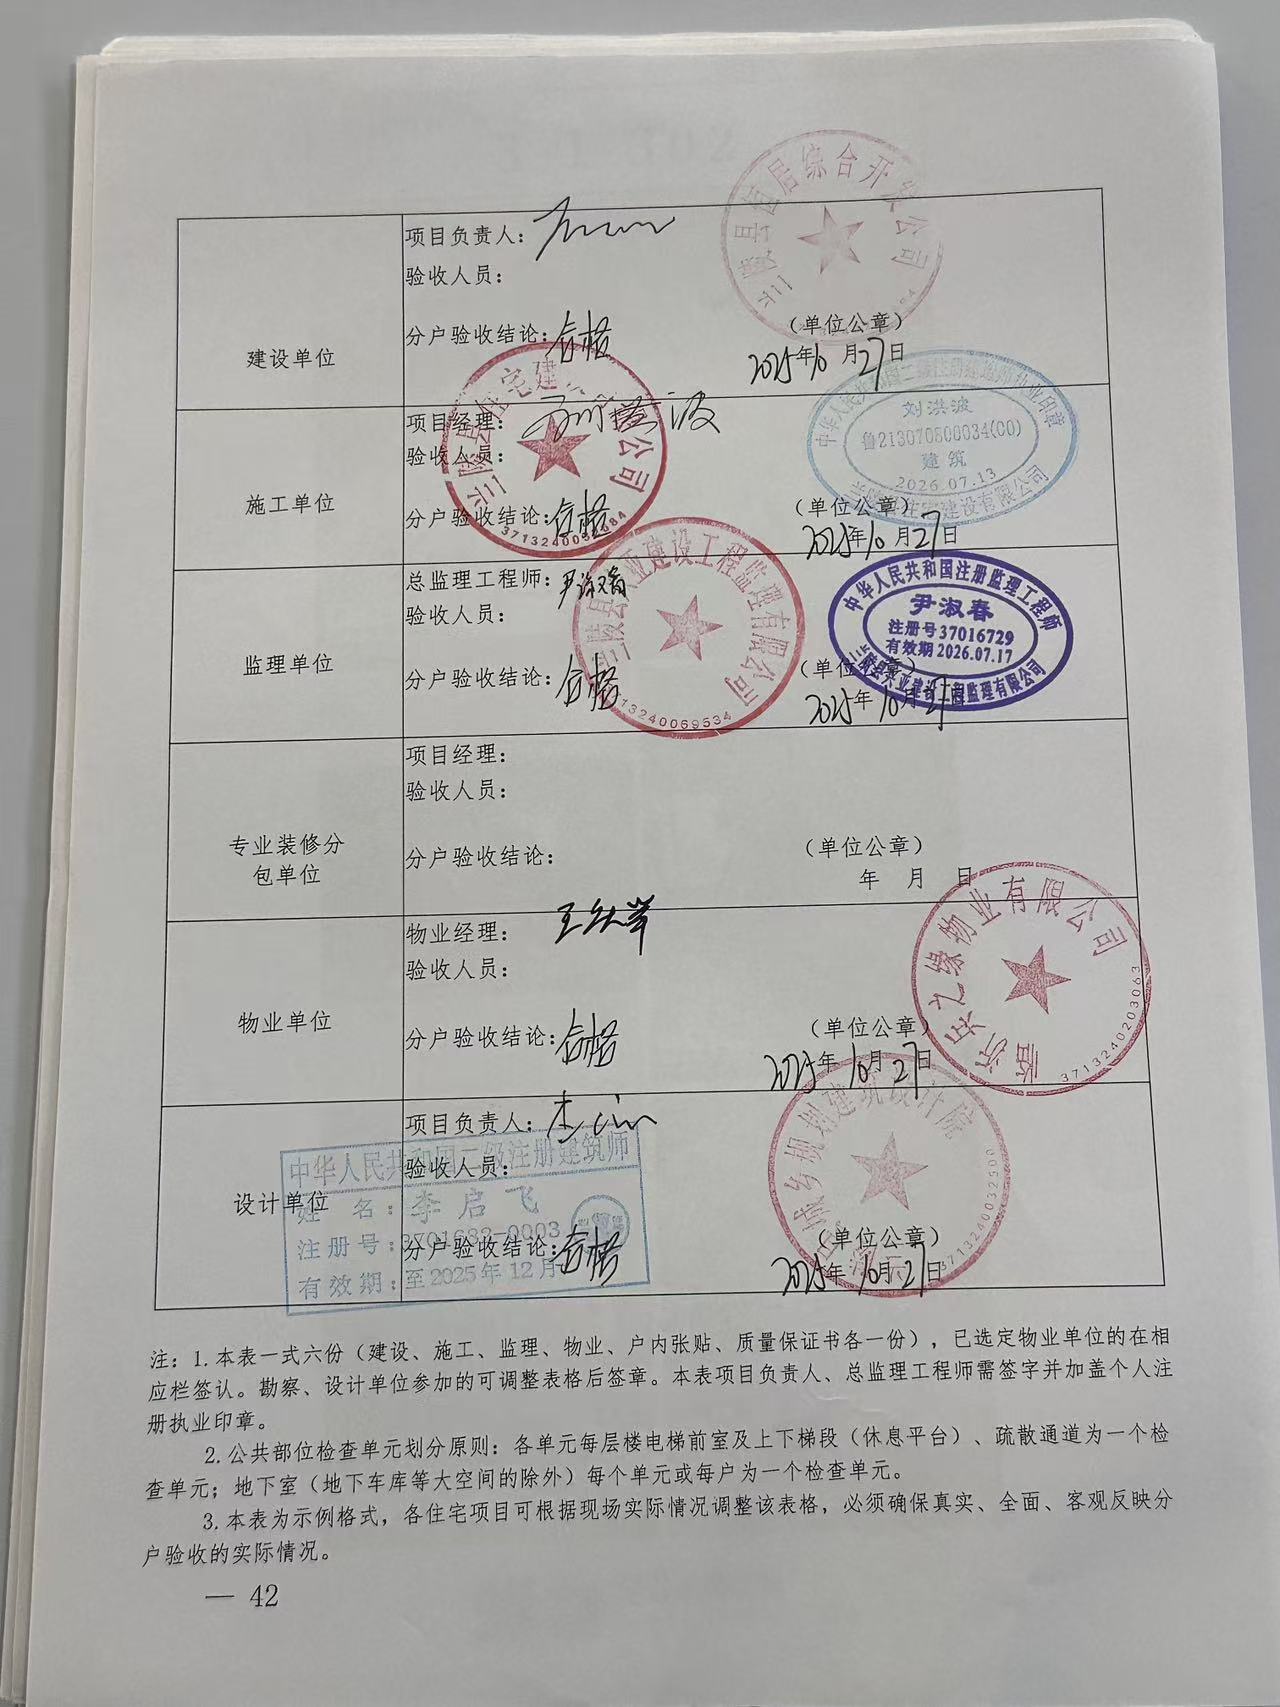 建设单位
项目负责人：
验收人员：
分户验收结论：合格
（单位公章）
2025年10月27日
兰陵县宜居综合开发公司
施工单位
项目经理：刘洪波
验收人员：
分户验收结论：合格
（单位公章）
2025年10月27日
公司
3713240032684
刘洪波
鲁213070800034(00)
建筑
2026.07.13
监理单位
总监理工程师：尹淑春
验收人员：
分户验收结论：合格
（单位公章）
2025年10月27日
兰陵县兴业建设工程监理有限公司
3713240069534
中华人民共和国注册监理工程师
尹淑春
注册号37016729
有效期2026.07.17
兰陵县兴业建设工程监理有限公司
专业装修分
包单位
项目经理：
验收人员：
分户验收结论：
（单位公章）
年 月 日
物业单位
物业经理：
验收人员：
分户验收结论：合格
（单位公章）
2025年10月27日
临沂兴之缘物业有限公司
3713240203063
设计单位
项目负责人：
验收人员：
分户验收结论：合格
（单位公章）
2025年10月27日
城乡规划建筑设计院
3713240032500
中华人民共和国二级注册建筑师
姓 名：李启飞
注册号：3701683-0003
有效期：至2025年12月
注：1.本表一式六份（建设、施工、监理、物业、户内张贴、质量保证书各一份），已选定物业单位的在相
应栏签认。勘察、设计单位参加的可调整表格后签章。本表项目负责人、总监理工程师需签字并加盖个人注
册执业印章。
2.公共部位检查单元划分原则：各单元每层楼电梯前室及上下梯段（休息平台）、疏散通道为一个检
查单元；地下室（地下车库等大空间的除外）每个单元或每户为一个检查单元。
3.本表为示例格式，各住宅项目可根据现场实际情况调整该表格，必须确保真实、全面、客观反映分
户验收的实际情况。
— 42